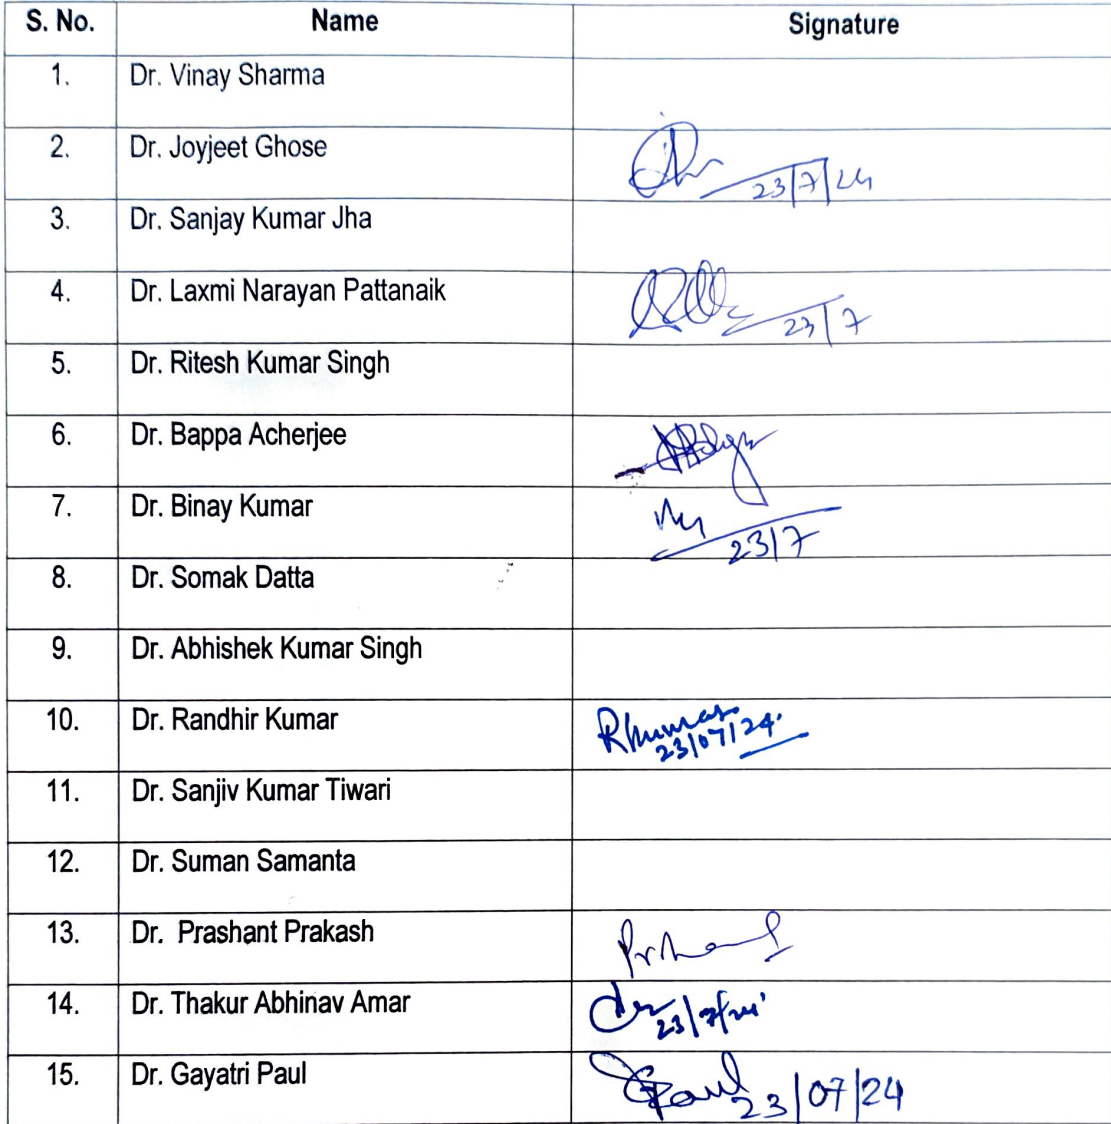 S. No. Name Signature
1. Dr. Vinay Sharma
2. Dr. Joyjeet Ghose 23/7/24
3. Dr. Sanjay Kumar Jha
4. Dr. Laxmi Narayan Pattanaik 23/7
5. Dr. Ritesh Kumar Singh
6. Dr. Bappa Acherjee
7. Dr. Binay Kumar 23/7
8. Dr. Somak Datta
9. Dr. Abhishek Kumar Singh
10. Dr. Randhir Kumar RKumar
23/07/24.
11. Dr. Sanjiv Kumar Tiwari
12. Dr. Suman Samanta
13. Dr. Prashant Prakash
14. Dr. Thakur Abhinav Amar 23/7/24
15. Dr. Gayatri Paul GPaul 23/07/24